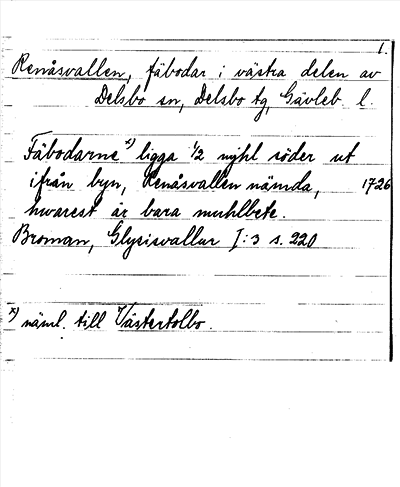 1.
Renåsvallen, fäbodar i västra delen av
Delsbo sn, Delsbo tg, Gävleb. l.
Fäbodarne x) ligga 1/2 mijhl söder ut
ifrån byn, Renåsvallen nämda, 1726
hwarest är bara muhlbete.
Broman, Glysisvallur I:3 s. 220
x) näml. till Västertolbo.